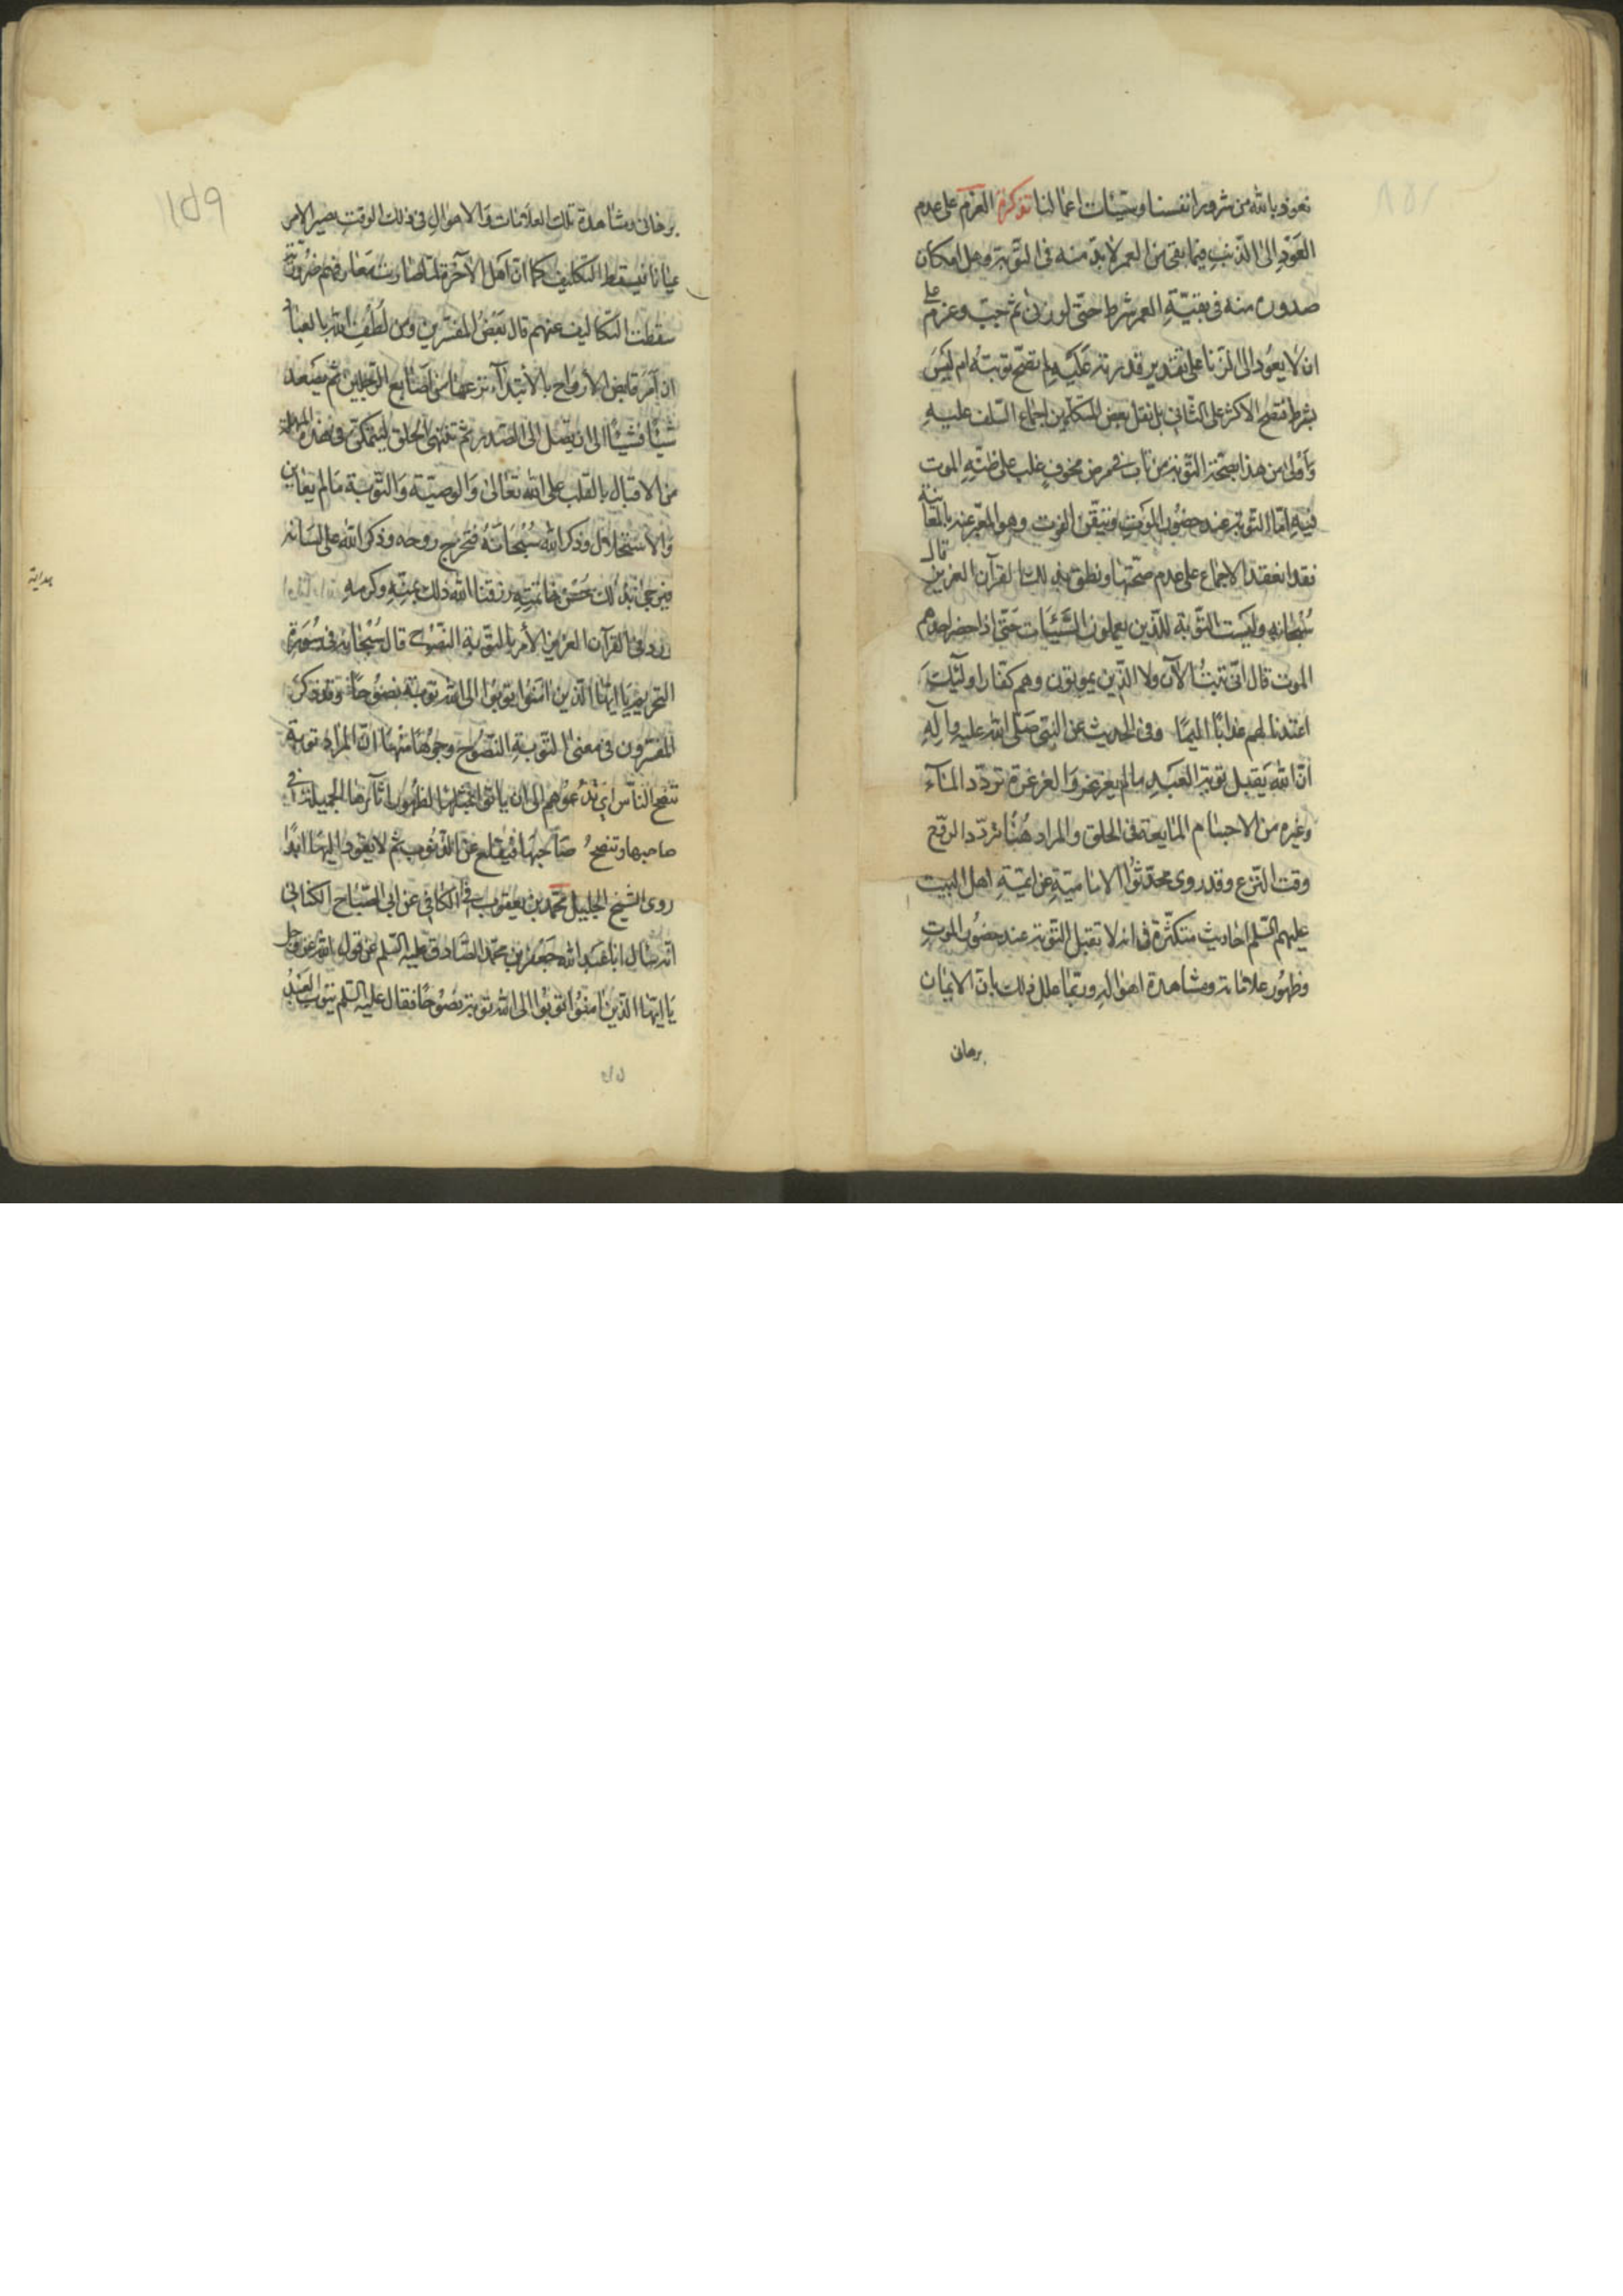 نعوذ بالله من شرور انفسنا وسيئات اعمالنا تذكرة العزم على عدم
العود الى الذنب فيما بقى من العمر لا بد منه فى التوبة وهل امكان
صدوره منه فى بقية العمر شرط حتى لو زنى ثم جب وعزم على
ان لا يعود الى الزنا على تقدير قدرته عليه لم تصح توبته ام ليس
بشرط فتصح الاكثر على الثانى بل نقل بعض المتكلمين اجماع السلف عليه
واولى من هذا بصحة التوبة من تاب فى مرض مخوف غلب على ظنه الموت
فيه اما التوبة عند حضور الموت وتيقن الفوت وهو المعبر عنه بالمعاينة
فقد انعقد الاجماع على عدم صحتها ونطق بذلك القرآن العزيز قال
سبحانه وليست التوبة للذين يعملون السيئات حتى اذا حضر احدهم
الموت قال انى تبت الآن ولا الذين يموتون وهم كفار اولئك
اعتدنا لهم عذابا اليما وفى الحديث عن النبى صلى الله عليه وآله
ان الله يقبل توبة العبد ما لم يغرغر والغرغرة تردد الماء
وغيره من الاجسام المايعة فى الحلق والمراد هنا تردد الروح
وقت النزع وقد روى محدثوا الامامية عن ائمة اهل البيت
عليهم السلم احاديث متكثرة فى انه لا تقبل التوبة عند حضور الموت
وظهور علاماته ومشاهدة اهواله وربما علل ذلك بان الايمان
برهانى
١١٥٩
برهانى ومشاهدة تلك العلامات والاحوال فى ذلك الوقت يصير الامر
عيانا فيسقط التكليف كما ان اهل الآخرة لما صارت معارفهم ضرورية
سقطت التكاليف عنهم قال بعض المفسرين ومن لطف الله بالعباد
ان امر قابض الارواح بالابتداء فى نزعها من اصابع الرجلين ثم يصعد
شيئا فشيئا الى ان يصل الى الصدر ثم تنتهى الى الحلق ليتمكن فى هذه المهلة
من الاقبال بالقلب على الله تعالى والوصية والتوبة ما لم يعاين
والاستحلال وذكر الله سبحانه فتخرج روحه وذكر الله على لسانه
فيرجى بذلك حسن خاتمته رزقنا الله ذلك بمنه وكرمه
هداية
ورد فى القرآن العزيز الأمر بالتوبة النصوح قال سبحانه فى سورة
التحريم يا ايها الذين امنوا توبوا الى الله توبة نصوحا وقد ذكر
المفسرون فى معنى التوبة النصوح وجوها منها ان المراد توبة
تنصح الناس اى تدعوهم الى ان ياتوا بمثلها لظهور آثارها الجميلة فى
صاحبها او تنصح صاحبها فيقلع عن الذنوب ثم لا يعود اليها ابدا
روى الشيخ الجليل محمد بن يعقوب فى الكافى عن ابى الصباح الكنانى
انه سال ابا عبد الله جعفر بن محمد الصادق عليه السلم عن قول الله عز وجل
يا ايها الذين امنوا توبوا الى الله توبة نصوحا فقال عليه السلم يتوب العبد